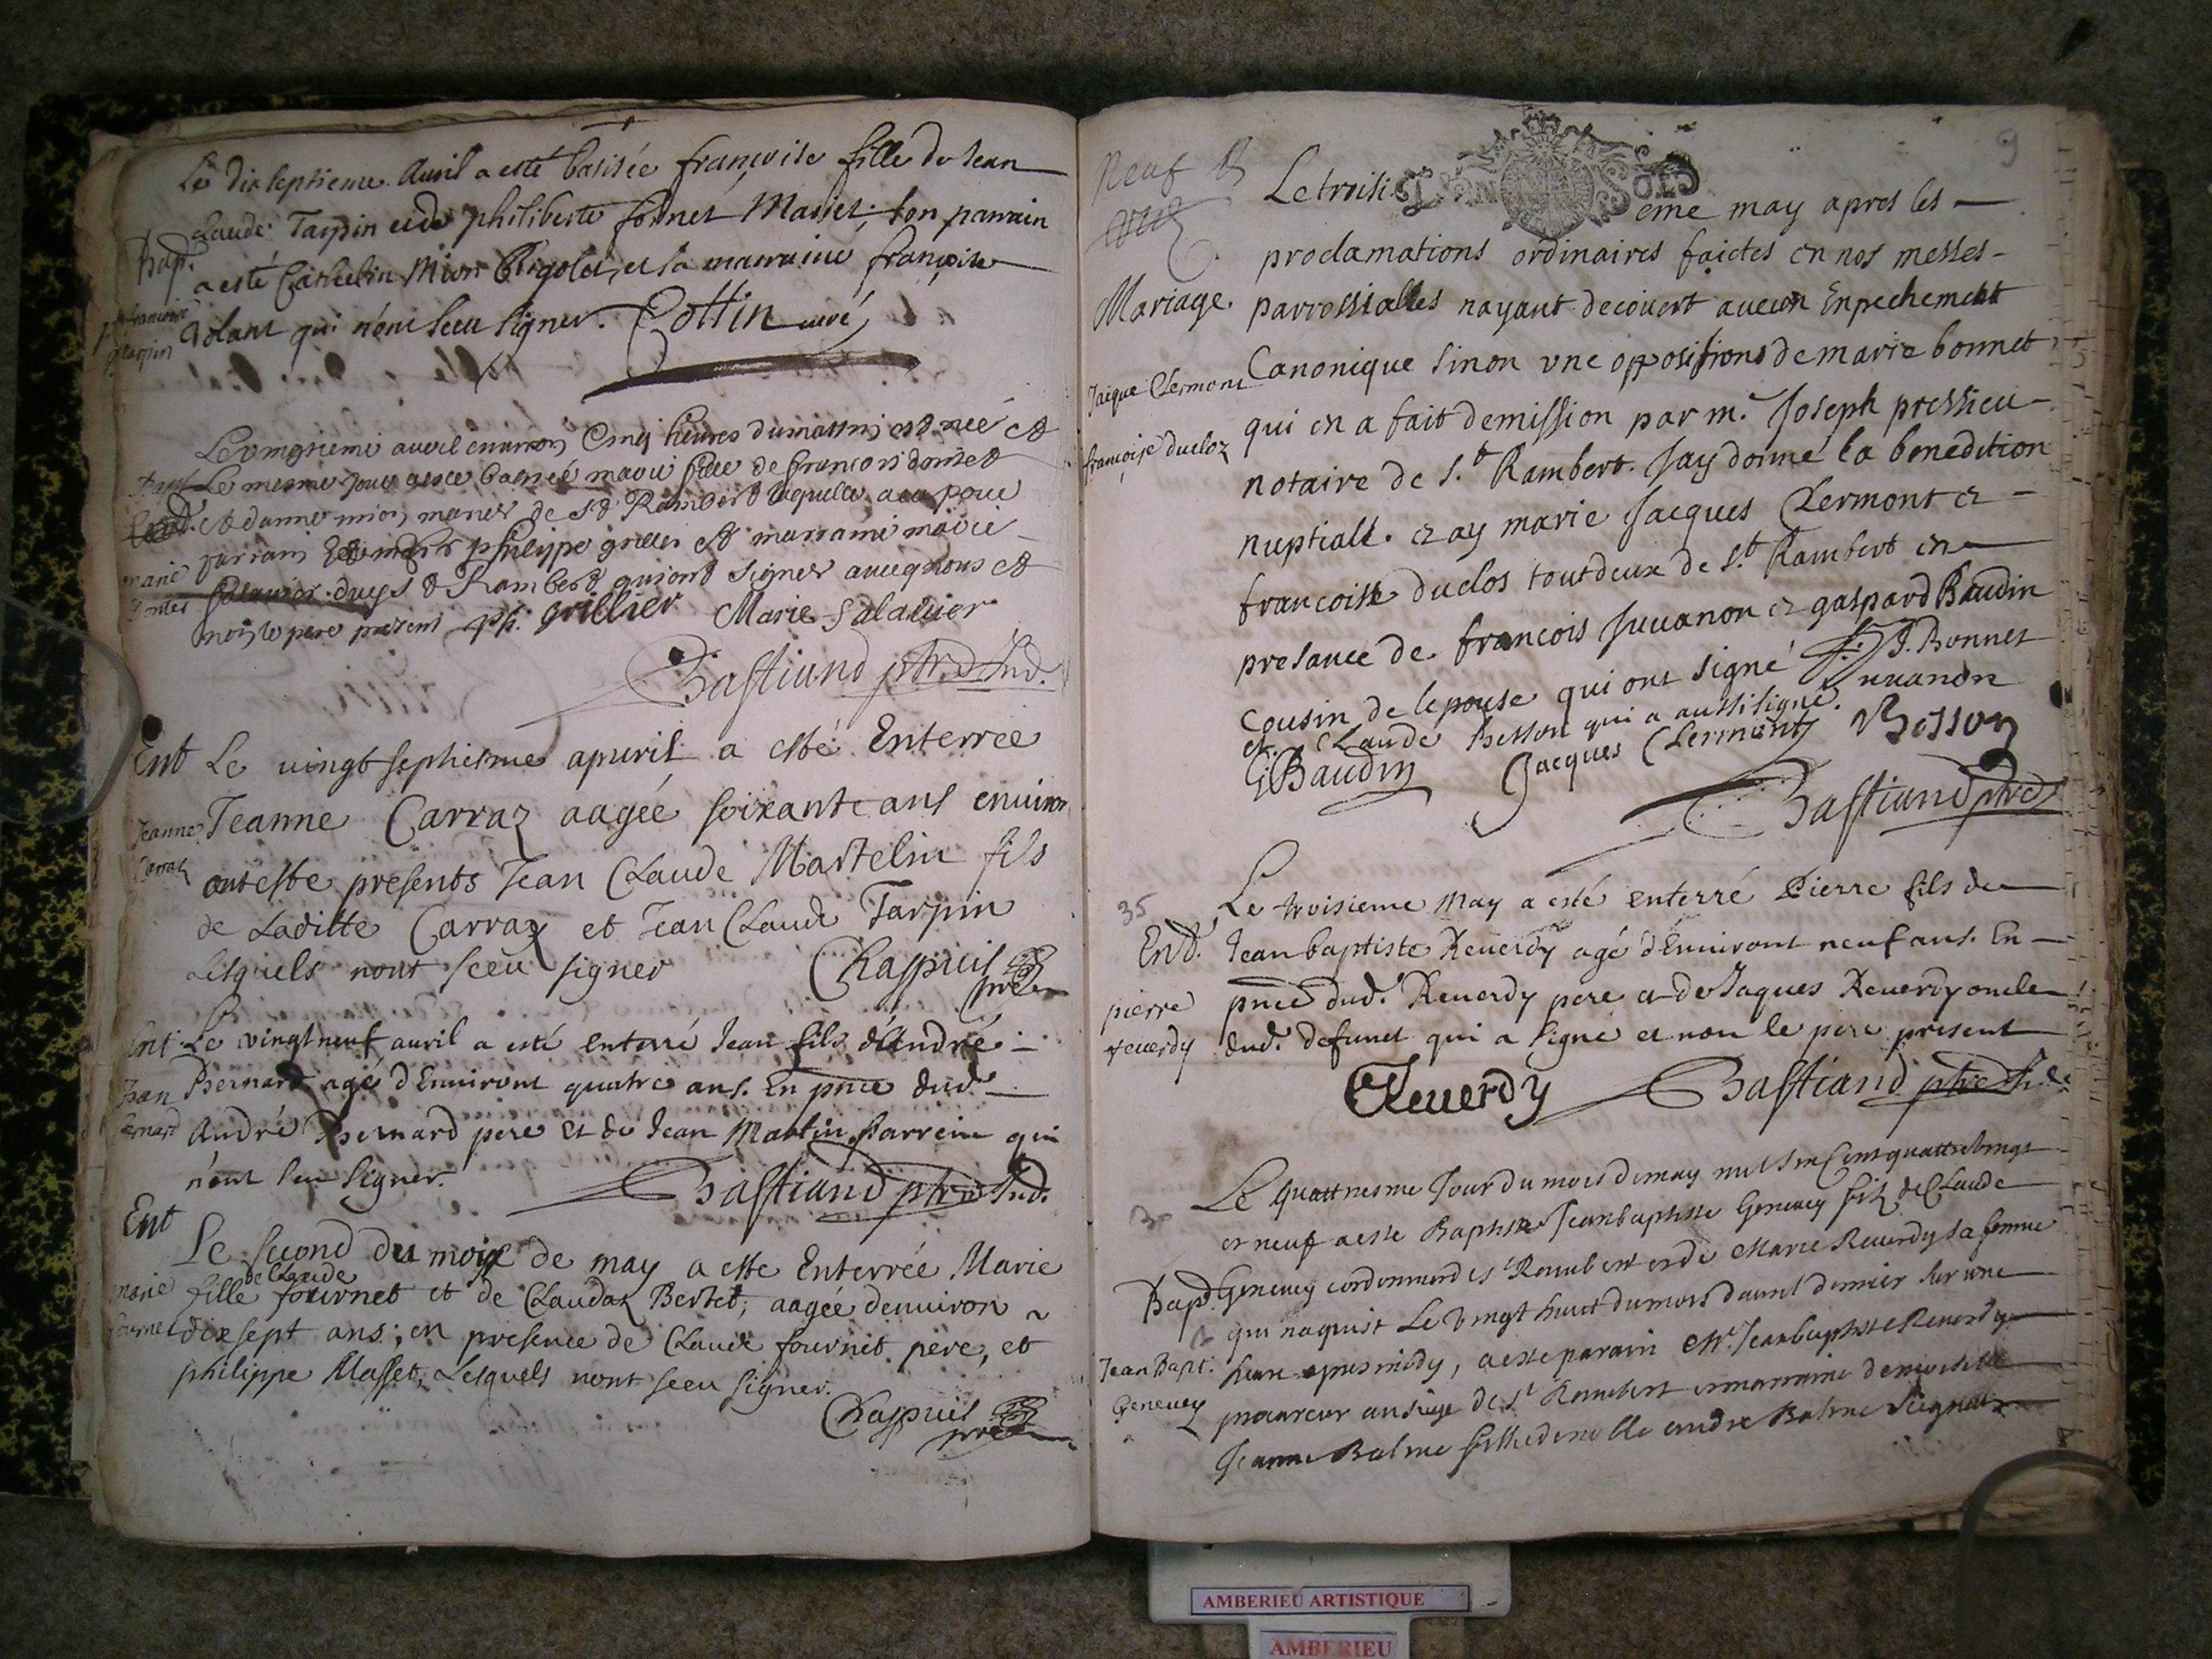 Le dix septieme Auril a esté batisée françoise fille de Jean
Claude Tarpin et de philiberte fornet Masset; son parrain
Bap.
a esté Cathelin Mion Brigolet, et sa marraine françoise
françoise
tarpin
Volant qui n'ont sceu signer. Cottin curé
Le vingtieme avril environ Cinq heures du matin est née et
Bapt Le mesme jour a esté batisée marie fillee de francois dontet
et danne mion maries de st Rambert laquelle a eu pour
parrain philippe grillier et marraine marie
marie
dontet
Salauier du st Rambert qui ont signer avecq nous et
non le pere present ph. grillier Marie Salauier
Bastiand ptre Ind.
Ent Le uingt sephiesme apuril a esté Enterree
Jeanne
Carraz
Jeanne Carraz aagée soixante ans enuiron
ont este presents Jean Claude Martelin fils
de Laditte Carraz et Jean Claude Tarpin
Lesquels nont sceu signer Chappuis
ptre
Ent Le vingt neuf auril a esté enterré Jean fils d'André
Jean
bernard
Bernard agé d'Enuiront quatre ans. En pnce dud.
André Bernard pere et de Jean Martin parrein qui
n'ont sceu signer.
Bastiand ptre Ind.
Ent
Le second du mois de may a esté Enterrée Marie
de Claude
marie
fournet
fille fournet et de Claudaz Bertet, aagée denuiron
dix sept ans; en presence de Claude fournet pere, et
philippe Masset, Lesquels nont sceu signer.
Chappuis
ptre
9
Neuf
Le troisi eme may apres les
proclamations ordinaires faictes en nos messes
Mariage. parrossialles nayant decouert aucun Enpechement
Jacque Clermont
Canonique sinon vne oppositions de marie bonnet
qui en a fait demission par m.e Joseph pressieu
françoise ducloz
notaire de S.t Rambert. Jay donné la benedition
nuptiall. et ay marie Jacques Clermont et
francoise duclos tout deux de S.t Rambert en
presance de francois Juuanon et gaspard Baudin
cousin de lepouse qui ont signé J. Bonnet
et Claude Besson qui a aussi signé. Juuanon
G Baudin Jacques Clermont Besson
Bastiand ptre
35
Le troisieme May a esté enterré Pierre fils de
End. Jean baptiste Reuerdy agé d'Enuiront neuf ans. En
pierre
reuerdy
pnce dud. Reuerdy pere et de Jaques Reuerdy oncle
dud. defunct qui a signe et non le pere present
JReuerdy Bastiand ptre
Le quattriesme Jour du mois de may mil six Cent quattre vingt
et neuf a este Baptise Jean baptiste Geneuey filz de Claude
Bapd. Geneuey cordonnier de st Rambert et de Marie Reuerdy sa femme
qui naquist Le Vingt huict du mois dauril dernier sur une
Jean Bapt.
Geneuey
heure apres midy, a este parain Mr. Jean baptiste Reuerdy
procureur au siege de st Rambert et marraine demoiselle
Jeanne Balme fille de noble andre Balme Seigneur
AMBERIEU ARTISTIQUE
AMBERIEU